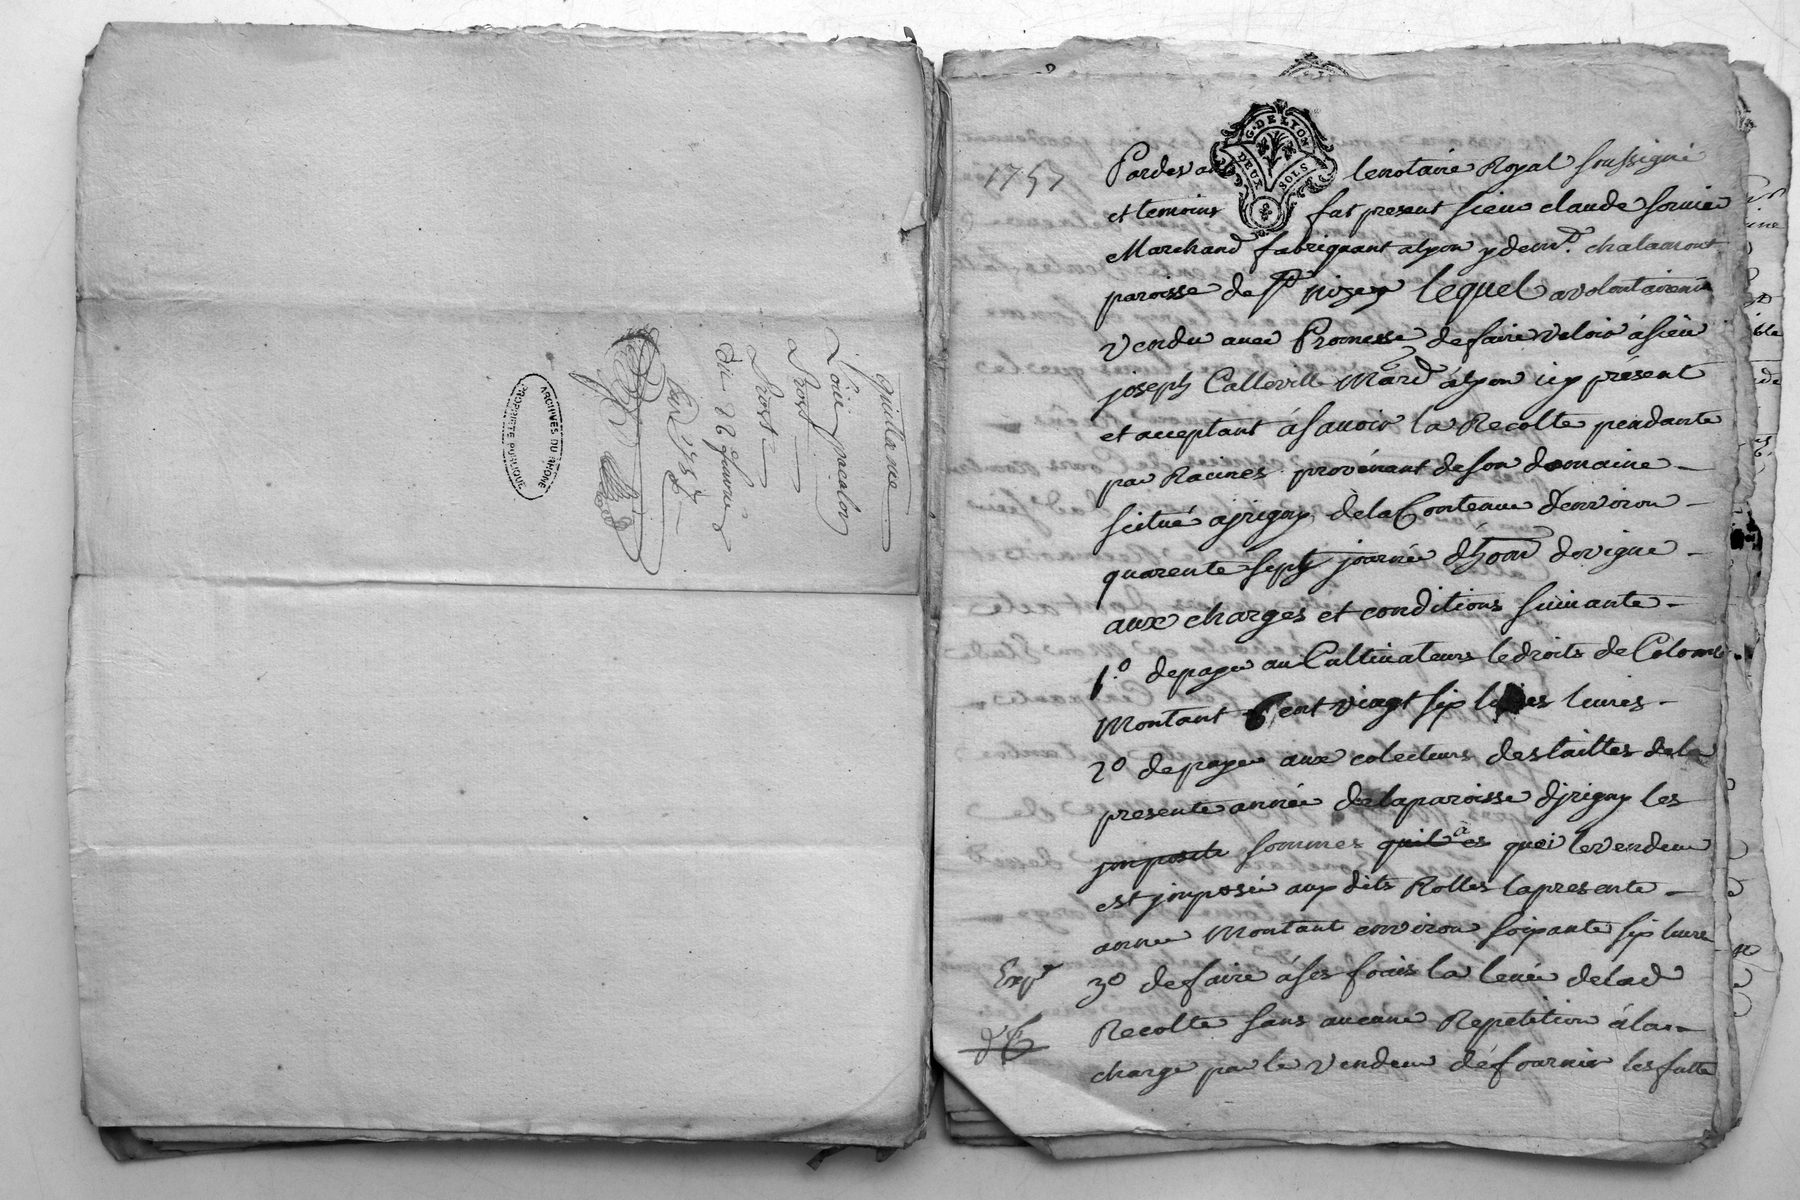 quittance
Louis
Prost
Prost
Du 26 fevrie
1757
ARCHIVES DU RHONE
PROPRIETE PUBLIQUE
G. DE LYON
DEUX SOLS
1757
Pardevant le notaire Royal soussigné
et temoins fut present sieur claude
Marchand fabriquant a lyon y demt. chalamont
paroisse de st nizey lequel a volontairemt
vendu avec Promesse de faire valoir á sieur
joseph Calleville Mard á lyon icy présent
et acceptant á sauoir la Recolte pendante
par Racines provénant de son domaine
scitué a jrigny de la Contenue d'environ
quarente sept journée d'hom de vigne
aux charges et conditions suivante
1.o de payer au Cultivateurs le droits de Colomb
Montant Cent vingt six livres
2o de payer aux colecteurs des tailles de la
presente année de la paroisse d'jrigny les
jmposite sommes quil es à quoi le vendeur
est jmposée aux dits Rolles la presente
année Montant environ soixante six livre
3o de faire á ses frais la levée de lad
Recolte sans aucune Repetition á la
charge par le vendeur dé fournir les futte
Expé